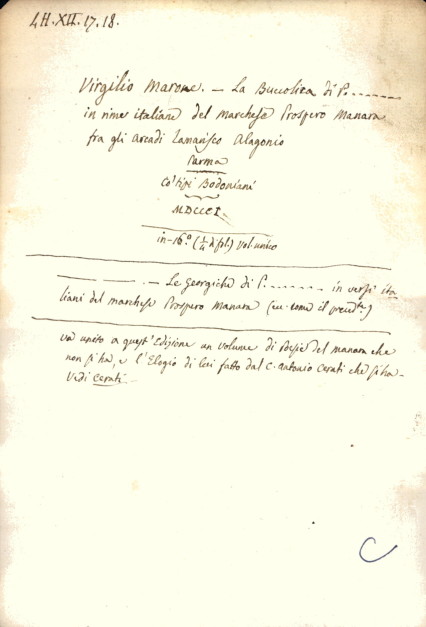 LH. XII. 17. 18.
Virgilio Marone. — La Buccolica di P. --------
in rime italiane del marchese Prospero Manara
fra gli Arcadi Tamarisco Alagonio
Parma
Co' tipi Bodoniani
MDCCCI.
in-16.° (1/4 di fol.) vol. unico
— — — . — Le Georgiche di P. -------- in versi ita
liani del marchese Prospero Manara (ut. come il preced.te)
va unito a quest'Edizione un volume di Poesie del Manara che
non si ha, e l'Elogio di lui fatto dal C. Antonio Cerati che si ha -
Vedi Cerati
C